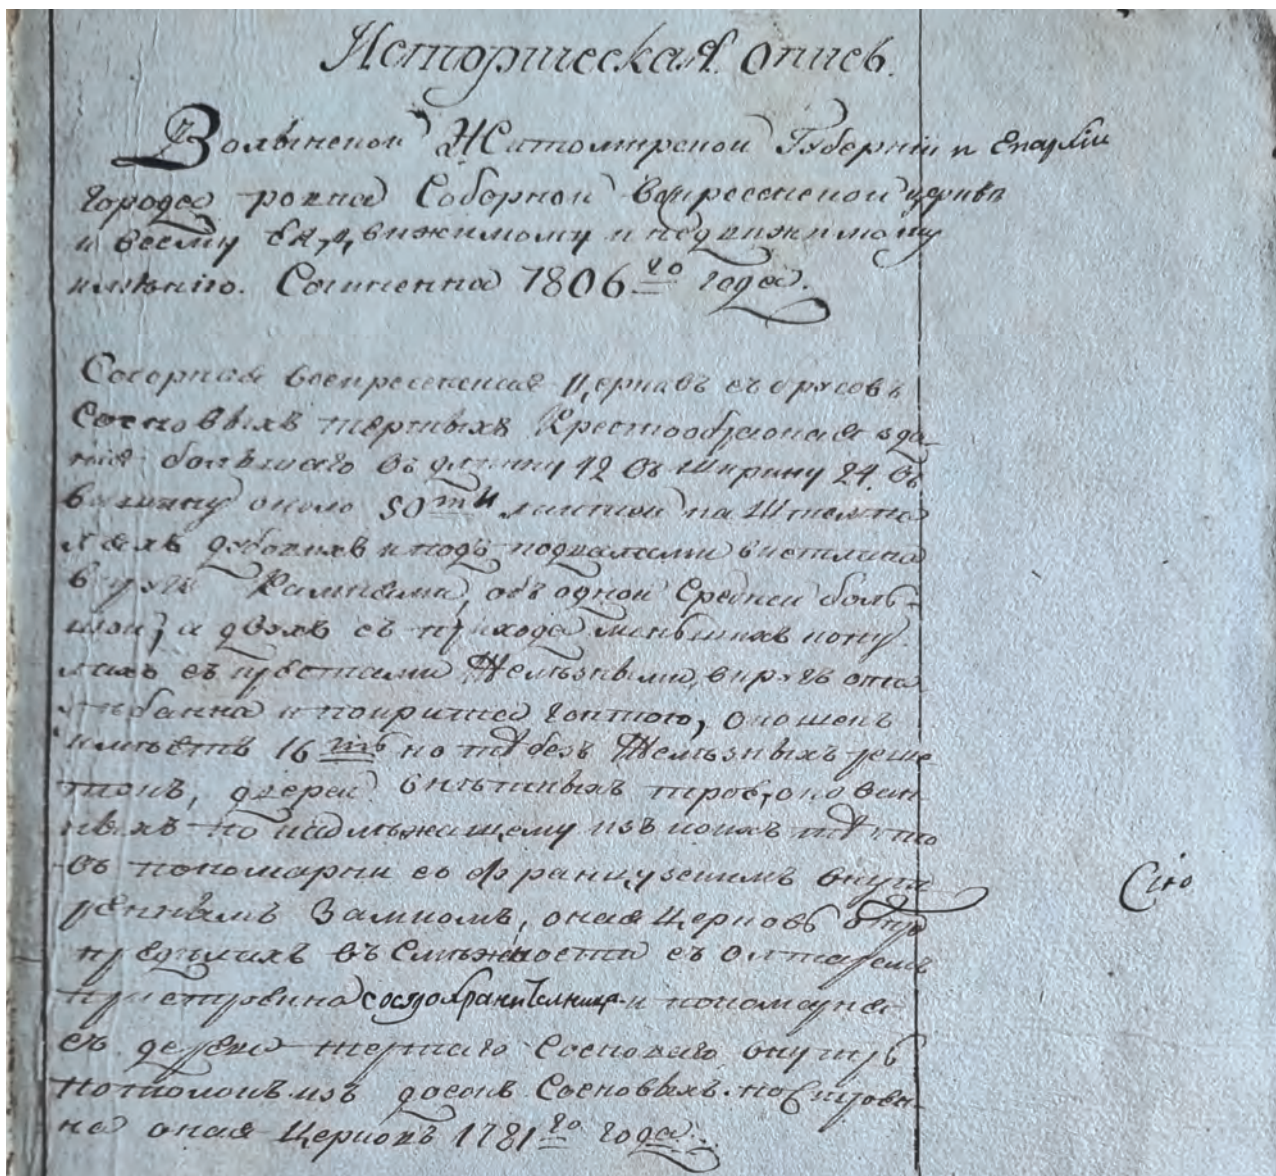 Историческая опись.
Волынской Житомирской Губерніи и Епархіи
города ровна Соборной воскресенской церкви
и всему Ея движимому и недвижимому
имѣнію. Сочиненна 1806го года.
Соборная воскресенская Церковь съ брусовъ
Сосновыхъ тертыхъ Крестообразная зда-
нія большаго въ длину 42 въ ширину 24. въ
вышину около 50ти локтей на
дубовихъ и подъ подвалами вистлана
Каминіами, объ одной Средней боль-
шой, а двохъ съ прихода меньшихъ копу
лахъ съ крестами Желѣзными, вкругъ
и покритая гонтою, окошекъ
имѣетъ 16ть но безъ Желѣзныхъ реше
токъ, дверей трое, окован
ныхъ по надлѣжащему изъ коихъ
въ пономарни съ французскимъ внут
реннимъ Замкомъ, оная Церковь
въ Смѣжности съ олтаремъ
пристроина сосудохранителница и пономарня
съ дерева тертаго Сосноваго внутрь
потолокъ изъ досокъ Сосновыхъ. построен-
на оная Церковь 1781го года.
Сію